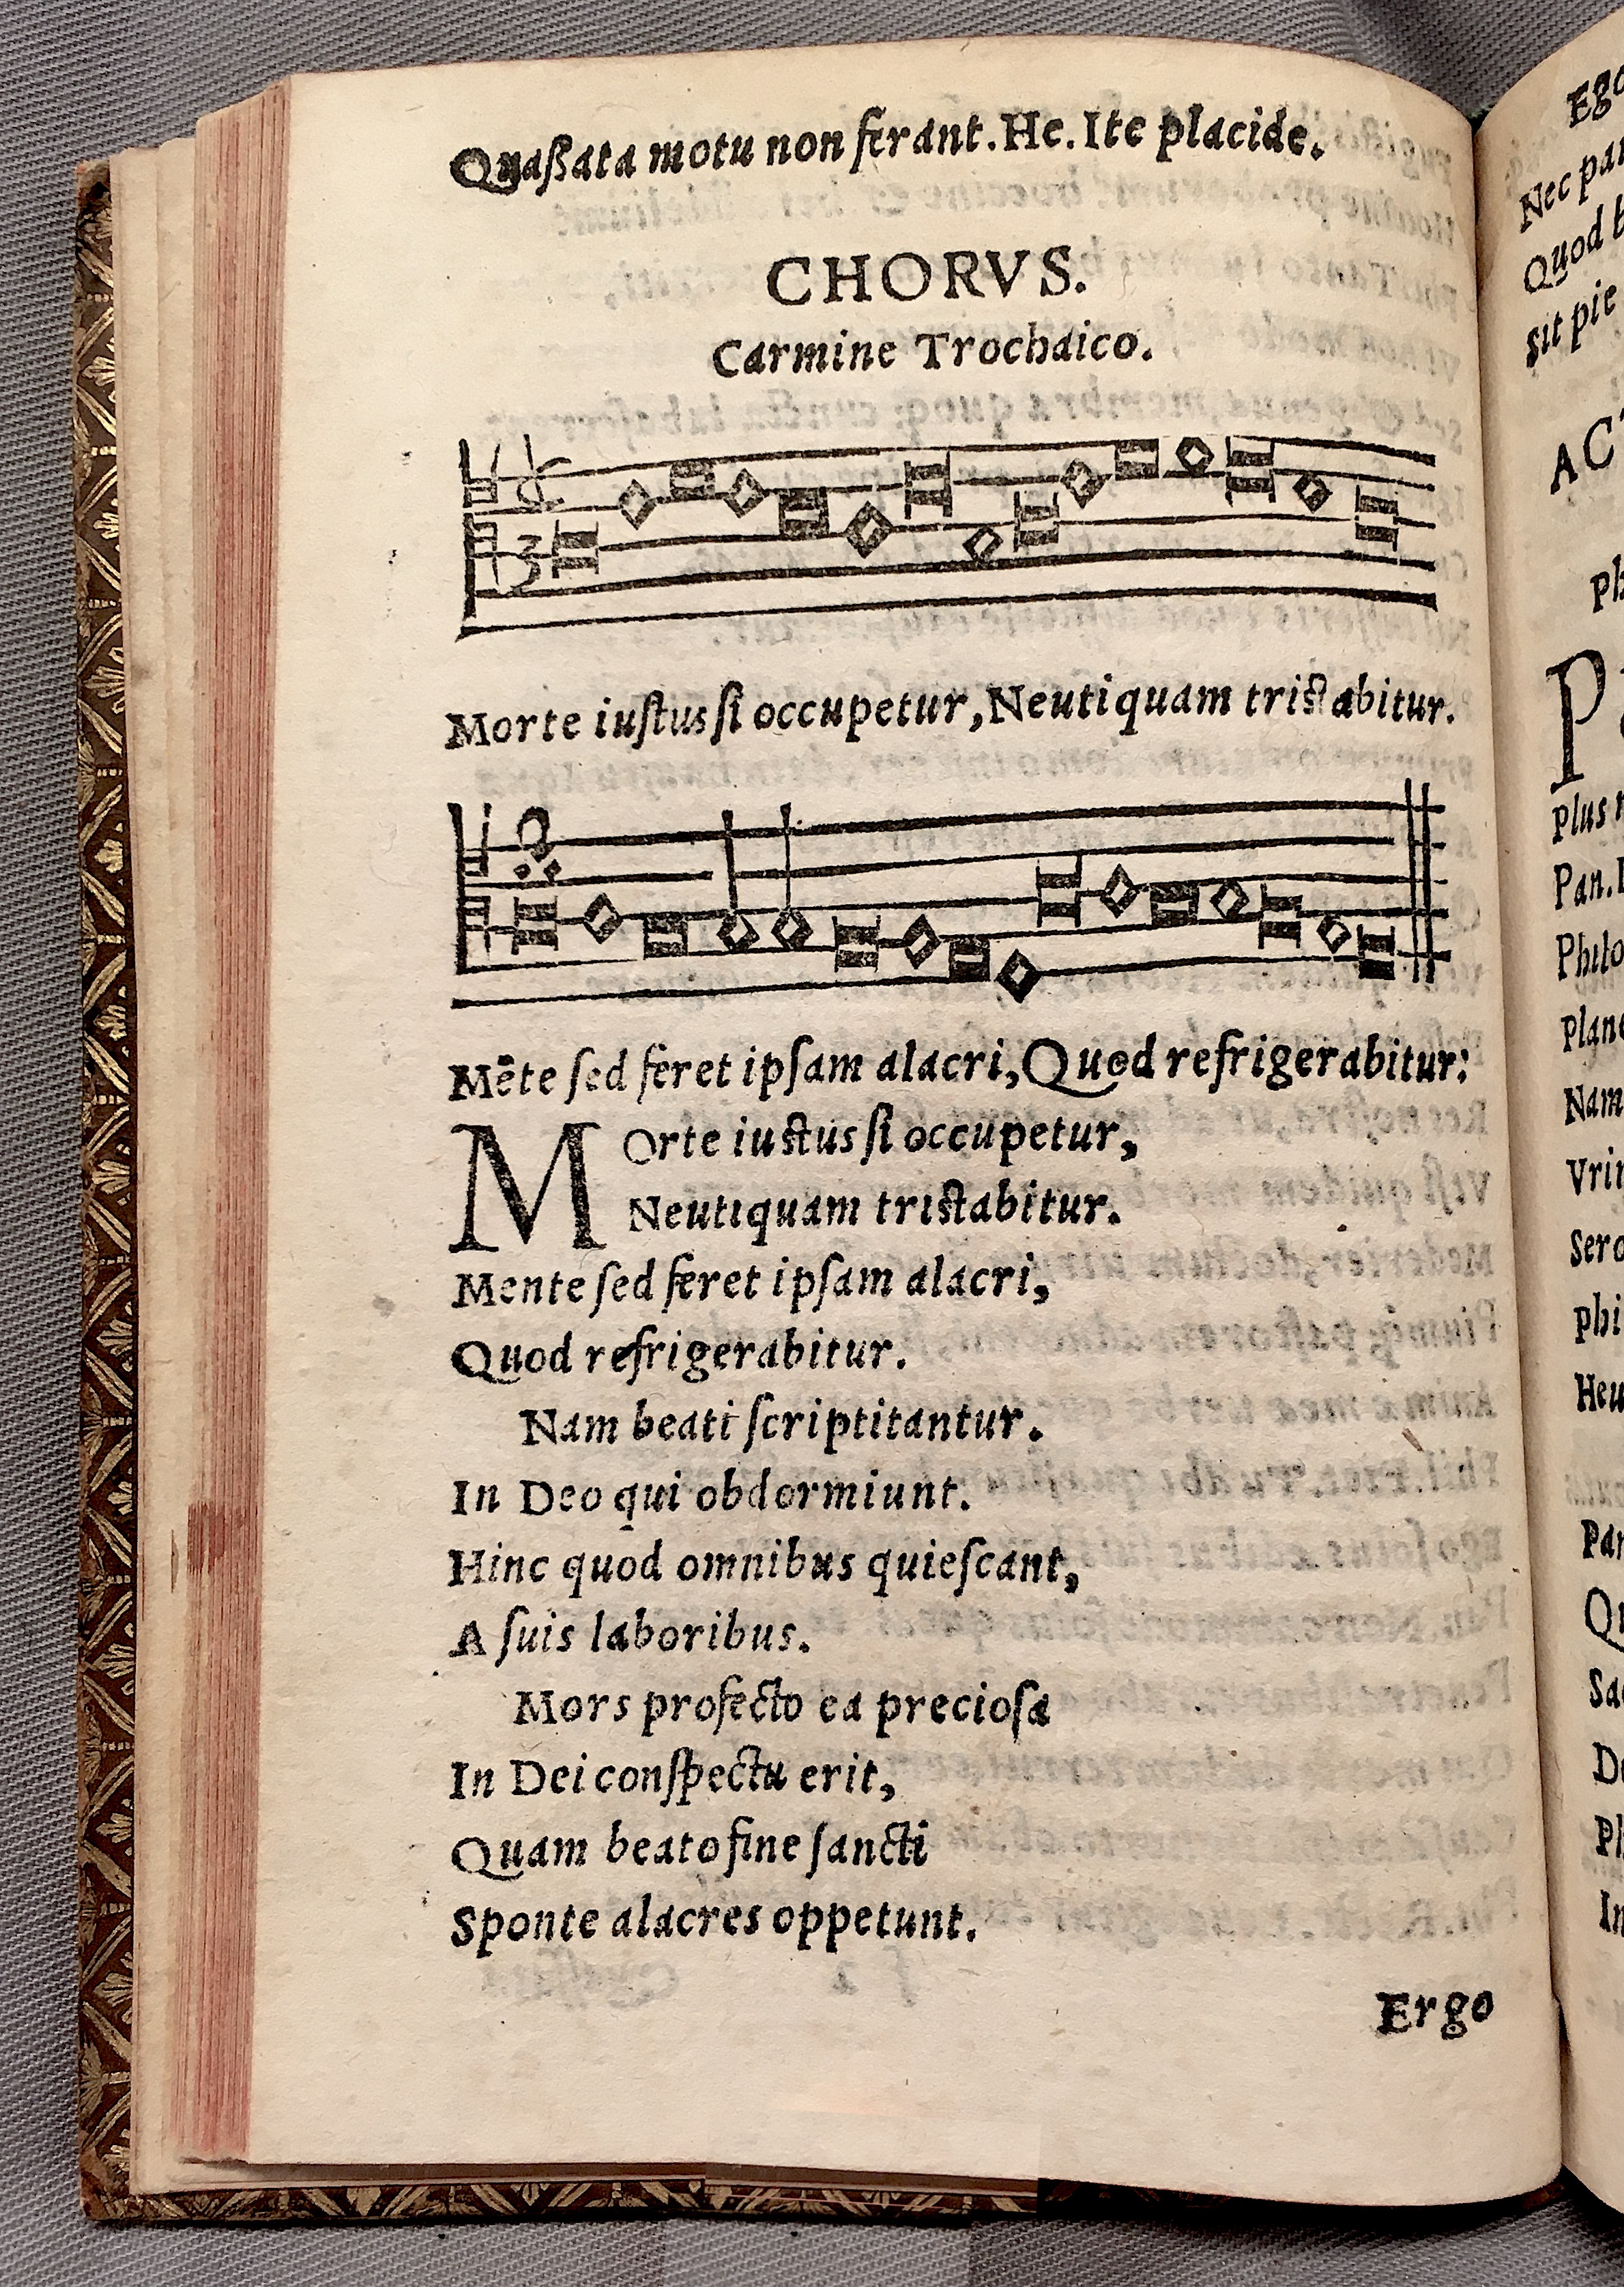 Quaßata motu non ferant. He. Ite placide.
CHORVS.
Carmine Trochaico.
3
Morte iuſtus ſi occupetur, Neutiquam triſtabitur.
Mēte ſed feret ipſam alacri, Quod refrigerabitur:
MOrte iuſtus ſi occupetur,
Neutiquam triſtabitur.
Mente ſed feret ipſam alacri,
Quod refrigerabitur.
Nam beati ſcriptitantur.
In Deo qui obdormiunt.
Hinc quod omnibus quieſcant,
A ſuis laboribus.
Mors profecto ea precioſa
In Dei conſpectu erit,
Quam beato fine ſancti
Sponte alacres oppetunt.
Ergo
Nec
Quod
sit pie
Plus
Pan.
Philo
Nam